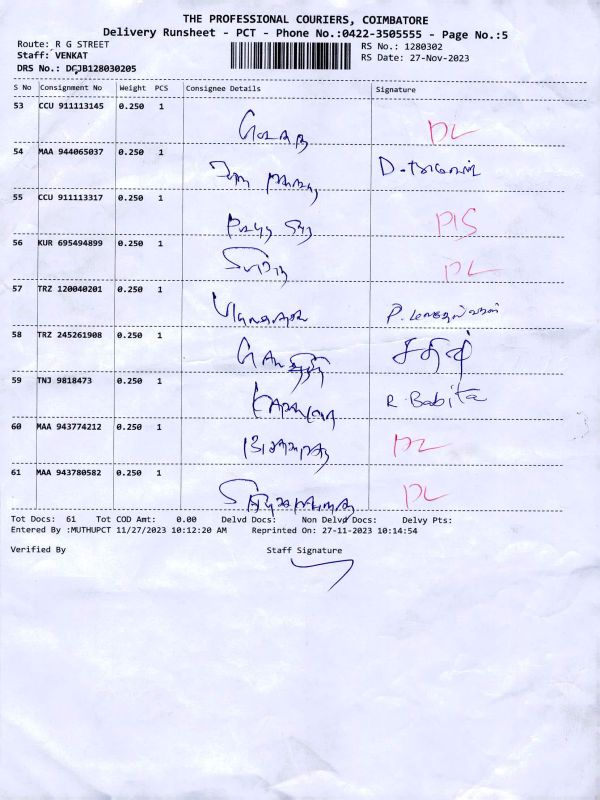 THE PROFESSIONAL COURIERS, COIMBATORE
Delivery Runsheet - PCT - Phone No.:0422-3505555 - Page No.:5
Route: R G STREET RS No.: 1280302
Staff: VENKAT RS Date: 27-Nov-2023
DRS No.: DCJB128030205
S No Consignment No Weight PCS Consignee Details Signature
53 CCU 911113145 0.250 1
DL
54 MAA 944065037 0.250 1
55 CCU 911113317 0.250 1
56 KUR 695494899 0.250 1
DL
57 TRZ 120040201 0.250 1
58 TRZ 245261908 0.250 1
சதீஷ்
59 TNJ 9818473 0.250 1
R. Babita
60 MAA 943774212 0.250 1
DL
61 MAA 943780582 0.250 1
DL
Tot Docs: 61 Tot COD Amt: 0.00 Delvd Docs: Non Delvd Docs: Delvy Pts:
Entered By :MUTHUPCT 11/27/2023 10:12:20 AM Reprinted On: 27-11-2023 10:14:54
Verified By Staff Signature